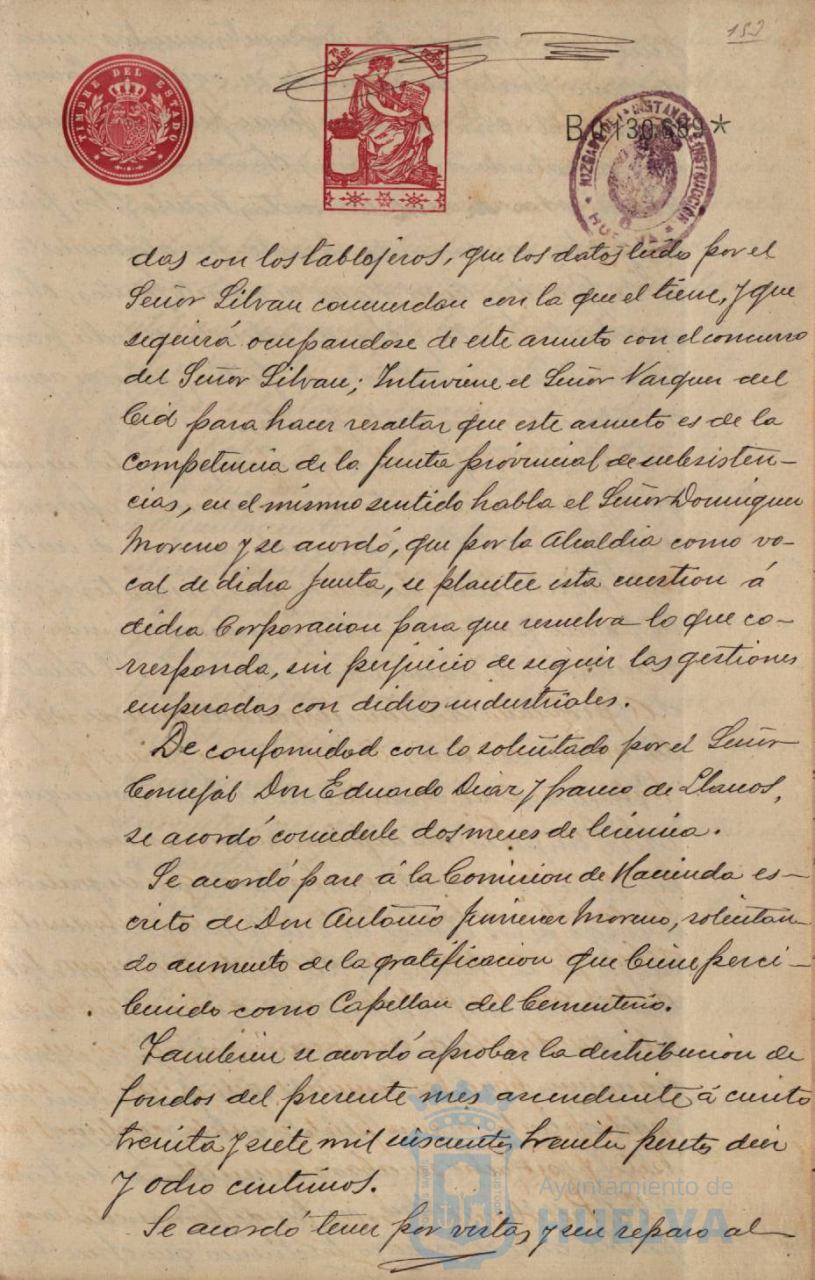 152
TIMBRE DEL ESTADO
7ª CLASE
B.0.130.689*
JUZGADO DE 1ª INSTANCIA E INSTRUCCIÓN
das con los tablajeros, que los datos leido por el
Señor Silvan concuerdan con la que el tiene, y que
seguirá ocupandose de este asunto con el concurso
del Señor Silvan; Interviene el Señor Vazquez del
Cid para hacer resaltar que este asunto es de la
competencia de la Junta provincial de subsisten-
cias, en el mismo sentido habla el Señor Dominguez
Moreno y se acordó, que por la Alcaldia como vo-
cal de dicha Junta, se plantee esta cuestion á
dicha Corporacion para que resuelva lo que co-
rresponda, sin perjuicio de seguir las gestiones
empezadas con dichos industriales.
De conformidad con lo solicitado por el Señor
Concejal Don Eduardo Diaz y franco de Llanos,
se acordó concederle dos meses de licencia.
Se acordó pase á la Comision de Hacienda es-
crito de Don Antonio Jimenez Moreno, solicitan-
do aumento de la gratificacion que biene perci-
biendo como Capellan del Cementerio.
Tambien se acordó aprobar la distribucion de
fondos del presente mes ascendente á ciento
treinta y siete mil seiscientas treinta pesetas diez
y ocho centimos.
Se acordó tener por vistas y sin reparo al-
Ayuntamiento de
HUELVA